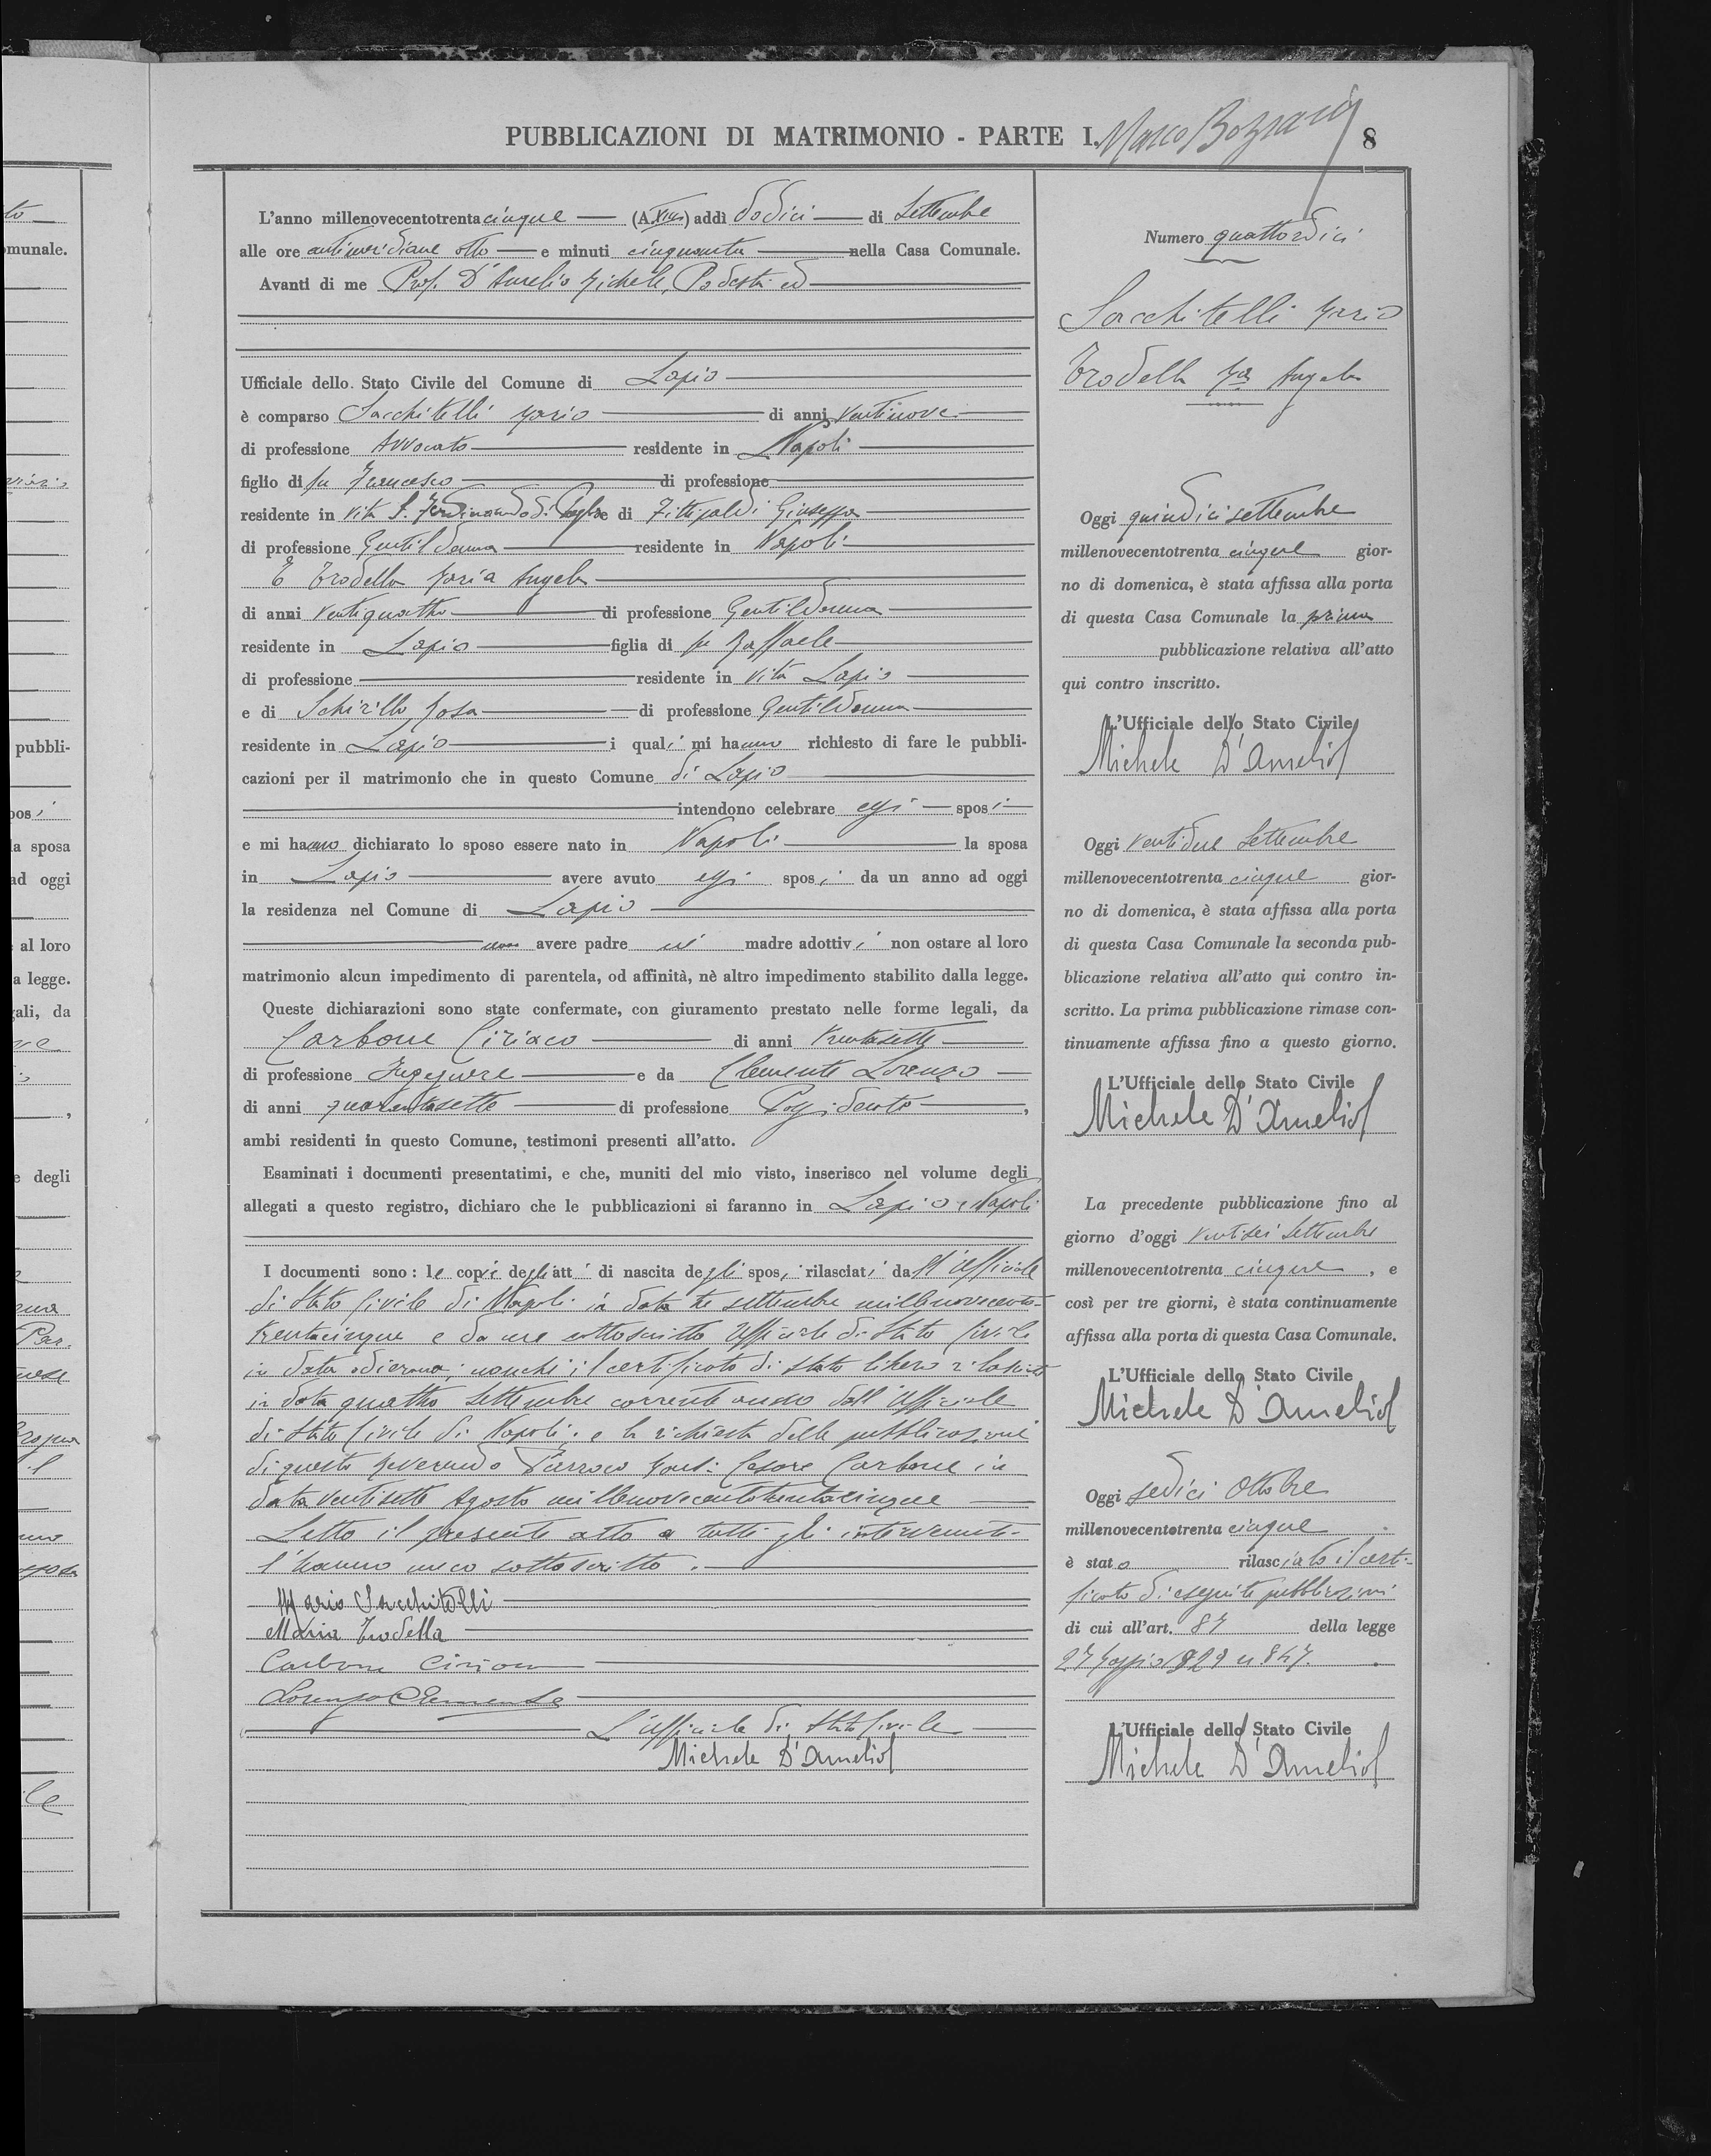 PUBBLICAZIONI DI MATRIMONIO - PARTE I.
8
L'anno millenovecentotrenta cinque (A. XIII) addì dodici di Settembre
alle ore antimeridiane otto e minuti cinquanta nella Casa Comunale.
Avanti di me Prof. D'Amelio Michele, Podestà ed
Ufficiale dello Stato Civile del Comune di Lapio
è comparso Sacchitelli Mario di anni ventinove
di professione Avvocato residente in Napoli
figlio di fu Francesco di professione
residente in vita S. Ferdinando di Puglia e di Fittipaldi Giuseppa
di professione Gentildonna residente in Napoli
E Trodella Maria Angela
di anni ventiquattro di professione Gentildonna
residente in Lapio figlia di fu Raffaele
di professione residente in vita Lapio
e di Schirillo Rosa di professione Gentildonna
residente in Lapio i quali mi hanno richiesto di fare le pubbli-
cazioni per il matrimonio che in questo Comune di Lapio
intendono celebrare essi sposi
e mi hanno dichiarato lo sposo essere nato in Napoli la sposa
in Lapio avere avuto essi sposi da un anno ad oggi
la residenza nel Comune di Lapio
non avere padre nè madre adottivi non ostare al loro
matrimonio alcun impedimento di parentela, od affinità, nè altro impedimento stabilito dalla legge.
Queste dichiarazioni sono state confermate, con giuramento prestato nelle forme legali, da
Carbone Ciriaco di anni trentasette
di professione Ingegnere e da Clemente Lorenzo
di anni quarantasette di professione Possidente,
ambi residenti in questo Comune, testimoni presenti all'atto.
Esaminati i documenti presentatimi, e che, muniti del mio visto, inserisco nel volume degli
allegati a questo registro, dichiaro che le pubblicazioni si faranno in Lapio e Napoli
I documenti sono: le copie degli atti di nascita degli sposi rilasciati dall'Ufficiale
di Stato Civile di Napoli in data tre settembre millenovecento-
trentacinque e da me sottoscritto Ufficiale di Stato Civile
in data odierna; nonchè il certificato di stato libero rilasciato
in data quattro settembre corrente anno dall'Ufficiale
di Stato Civile di Napoli; e la richiesta delle pubblicazioni
di questo Reverendo Parroco Mons. Cesare Carbone in
data ventisette Agosto millenovecentotrentacinque
Letto il presente atto a tutti gli intervenuti
l'hanno meco sottoscritto.
Mario Sacchitelli
Maria Trodella
Carbone Ciriaco
Lorenzo Clemente
L'ufficiale di Stato Civile
Michele D'Amelio
Numero quattordici
Sacchitelli Mario
Trodella Ma Angela
Oggi quindici settembre
millenovecentotrenta cinque gior-
no di domenica, è stata affissa alla porta
di questa Casa Comunale la prima
pubblicazione relativa all'atto
qui contro inscritto.
L'Ufficiale dello Stato Civile
Michele D'Amelio
Oggi ventidue Settembre
millenovecentotrenta cinque gior-
no di domenica, è stata affissa alla porta
di questa Casa Comunale la seconda pub-
blicazione relativa all'atto qui contro in-
scritto. La prima pubblicazione rimase con-
tinuamente affissa fino a questo giorno.
L'Ufficiale dello Stato Civile
Michele D'Amelio
La precedente pubblicazione fino al
giorno d'oggi ventisei Settembre
millenovecentotrenta cinque, e
così per tre giorni, è stata continuamente
affissa alla porta di questa Casa Comunale.
L'Ufficiale dello Stato Civile
Michele D'Amelio
Oggi sedici Ottobre
millenovecentotrenta cinque
è stato rilasciato il certi-
ficato di eseguite pubblicazioni
di cui all'art. 87 della legge
27 Maggio 1929 n 847.
L'Ufficiale dello Stato Civile
Michele D'Amelio